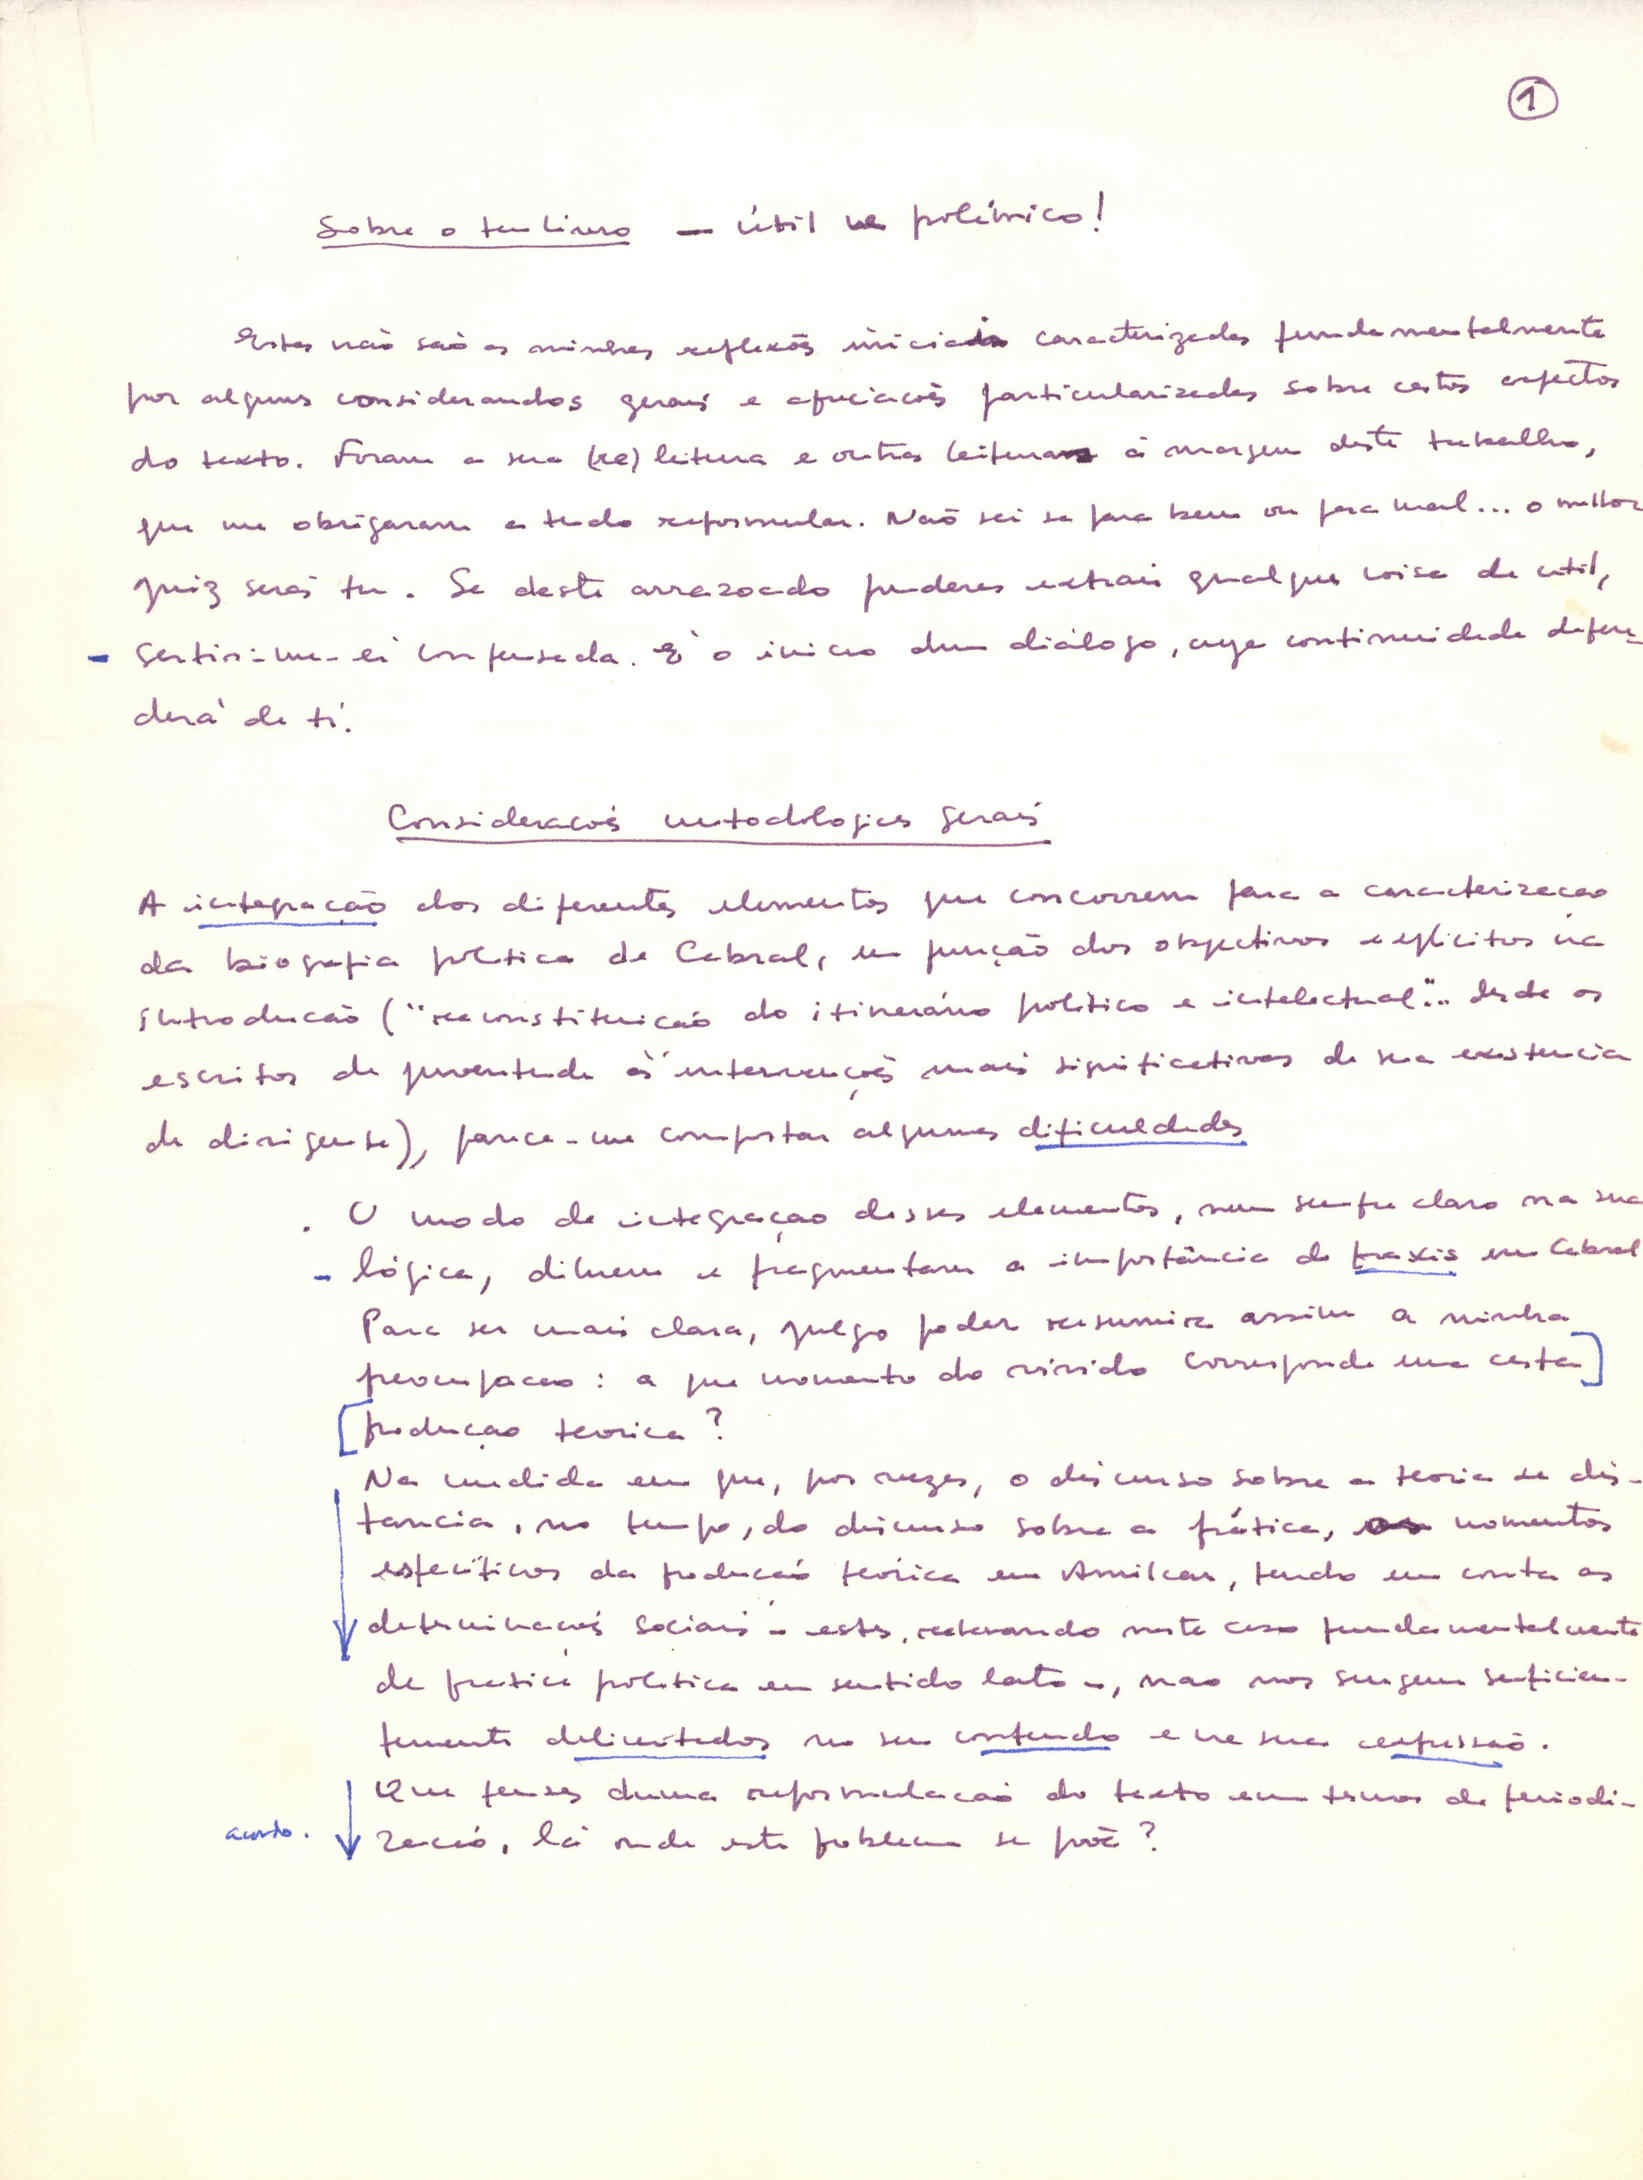 1
Sobre o teu livro — útil ve polémico!
Estas não são as minhas reflexões iniciais caracterizadas fundamentalmente
por alguns considerandos gerais e apreciacões particularizadas sobre certos aspectos
do texto. Foram a sua (re) leitura e outras leituras à margem deste trabalho,
que me obrigaram a tudo reformular. Não sei se para bem ou para mal... o melhor
juiz serás tu. Se deste arrazoado puderes extrair qualquer coisa de util,
- sentir-me-ei compensada. É o inicio dum diálogo, cuja continuidade depen-
derá de ti.
Consideracões metodologicas gerais
A integração dos diferentes elementos que concorrem para a caracterizacao
da biografia politica de Cabral, em função dos objectivos explicitos na
introducão ("reconstituicão do itinerário politico e intelectual"... desde os
escritos da juventude às intervenções mais significativas da sua existencia
de dirigente), parece-me comportar algumas dificuldades
. O modo de integraçao desses elementos, nem sempre claro na sua
- lógica, diluem e fragmentam a importância da praxis em Cabral
Para ser mais clara, julgo poder resumir assim a minha
preocupacao : a que momento do vivido corresponde uma certa]
[produçao teorica ?
Na medida em que, por vezes, o discurso sobre a teoria se dis-
tancia, no tempo, do discurso sobre a prática, os momentos
especificos da producão teórica em Amilcar, tendo em conta as
determinacões sociais - estas, relevando neste caso fundamentalmente
da pratica politica em sentido lato -, nao nos surgem suficien-
temente delimitados no seu conteudo e na sua expressão.
Que pensas duma reformulacão do texto em termos de periodi-
acordo. zacão, lá onde este problema se põe ?